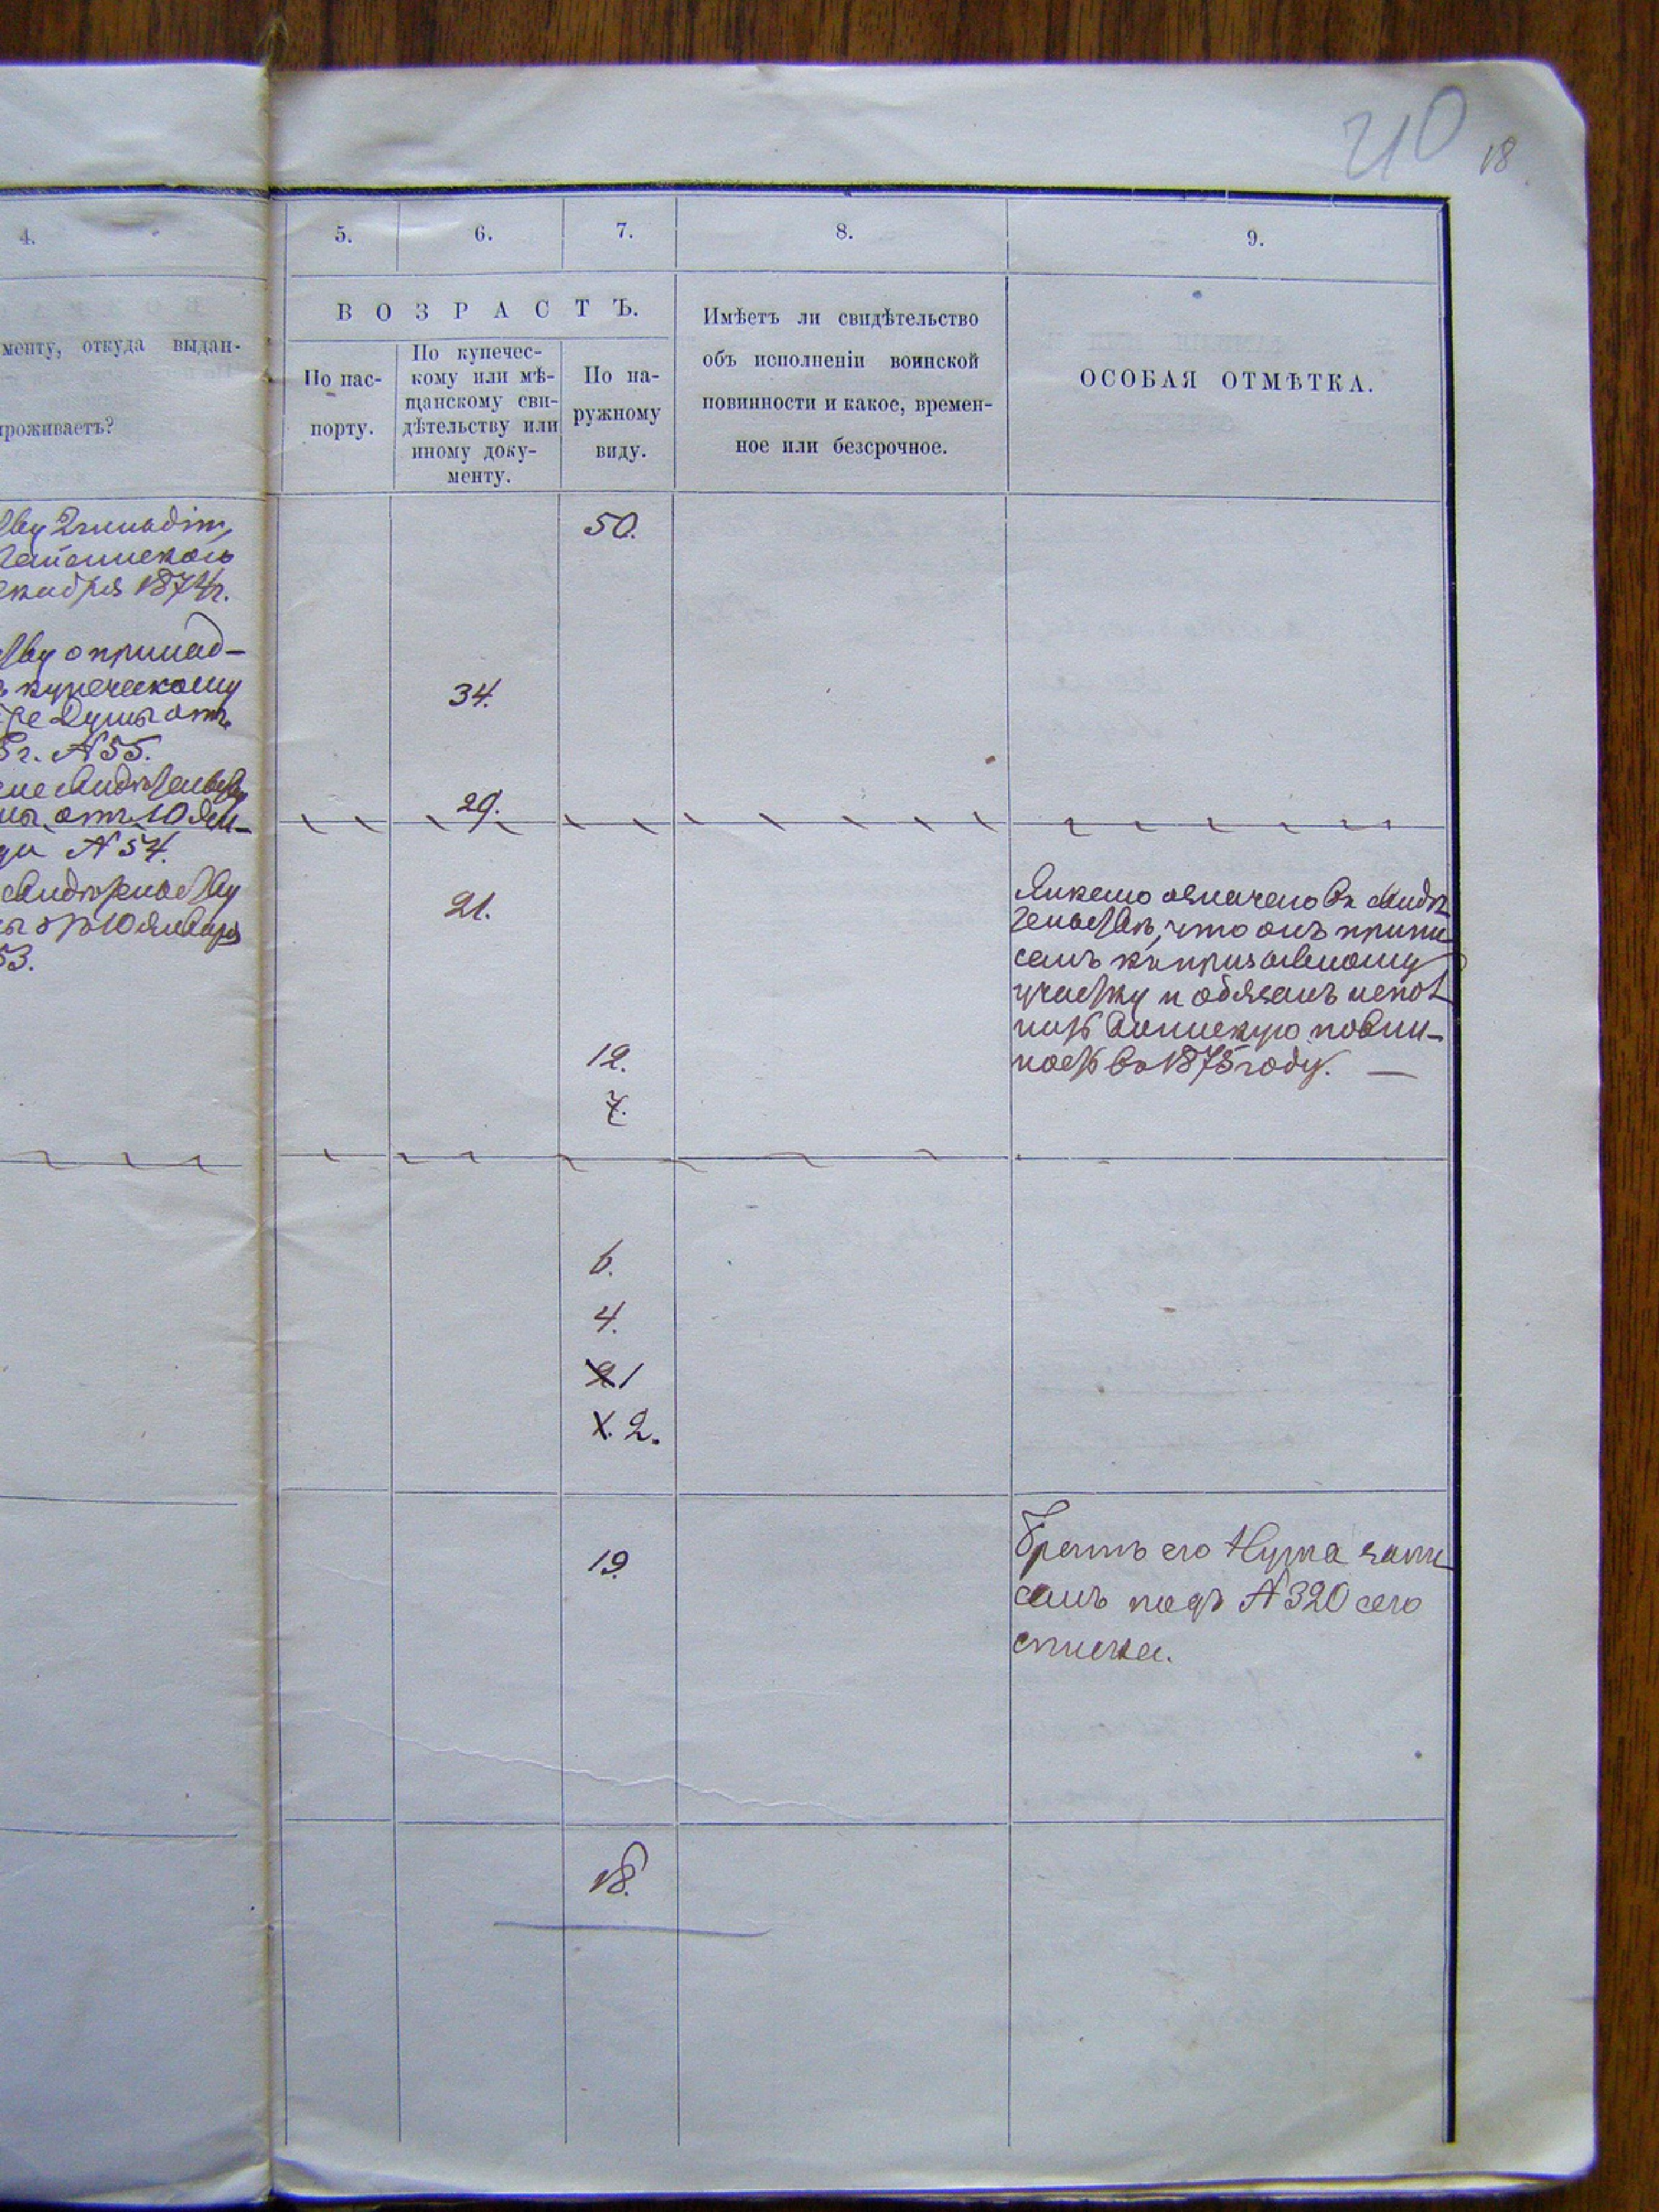 40 18
4. 5. 6. 7. 8. 9.
менту, откуда выдан-
проживаетъ?
ВОЗРАСТЪ.
По пас-
порту.
По купечес-
кому или мѣ-
щанскому сви-
дѣтельству или
иному доку-
менту.
По на-
ружному
виду.
Имѣетъ ли свидѣтельство
объ исполненіи воинской
повинности и какое, времен-
ное или безсрочное.
ОСОБАЯ ОТМѢТКА.
2 гильдіи,
кабря 1874 г.
50.
о принад-
купеческому
Думы отъ
5 г. № 55.
34.
отъ 10 Ян-
№ 54.
29.
10 Января
53.
21.
означено въ Свидѣ
тельствѣ, что онъ припи
санъ къ призывному
участку и обязанъ испол
нить воинскую повин-
ность въ 1875 году. —
12.
7.
6.
4.
2 1
1. 2.
19.
Братъ его запи
санъ подъ № 320 сего
списка.
18.